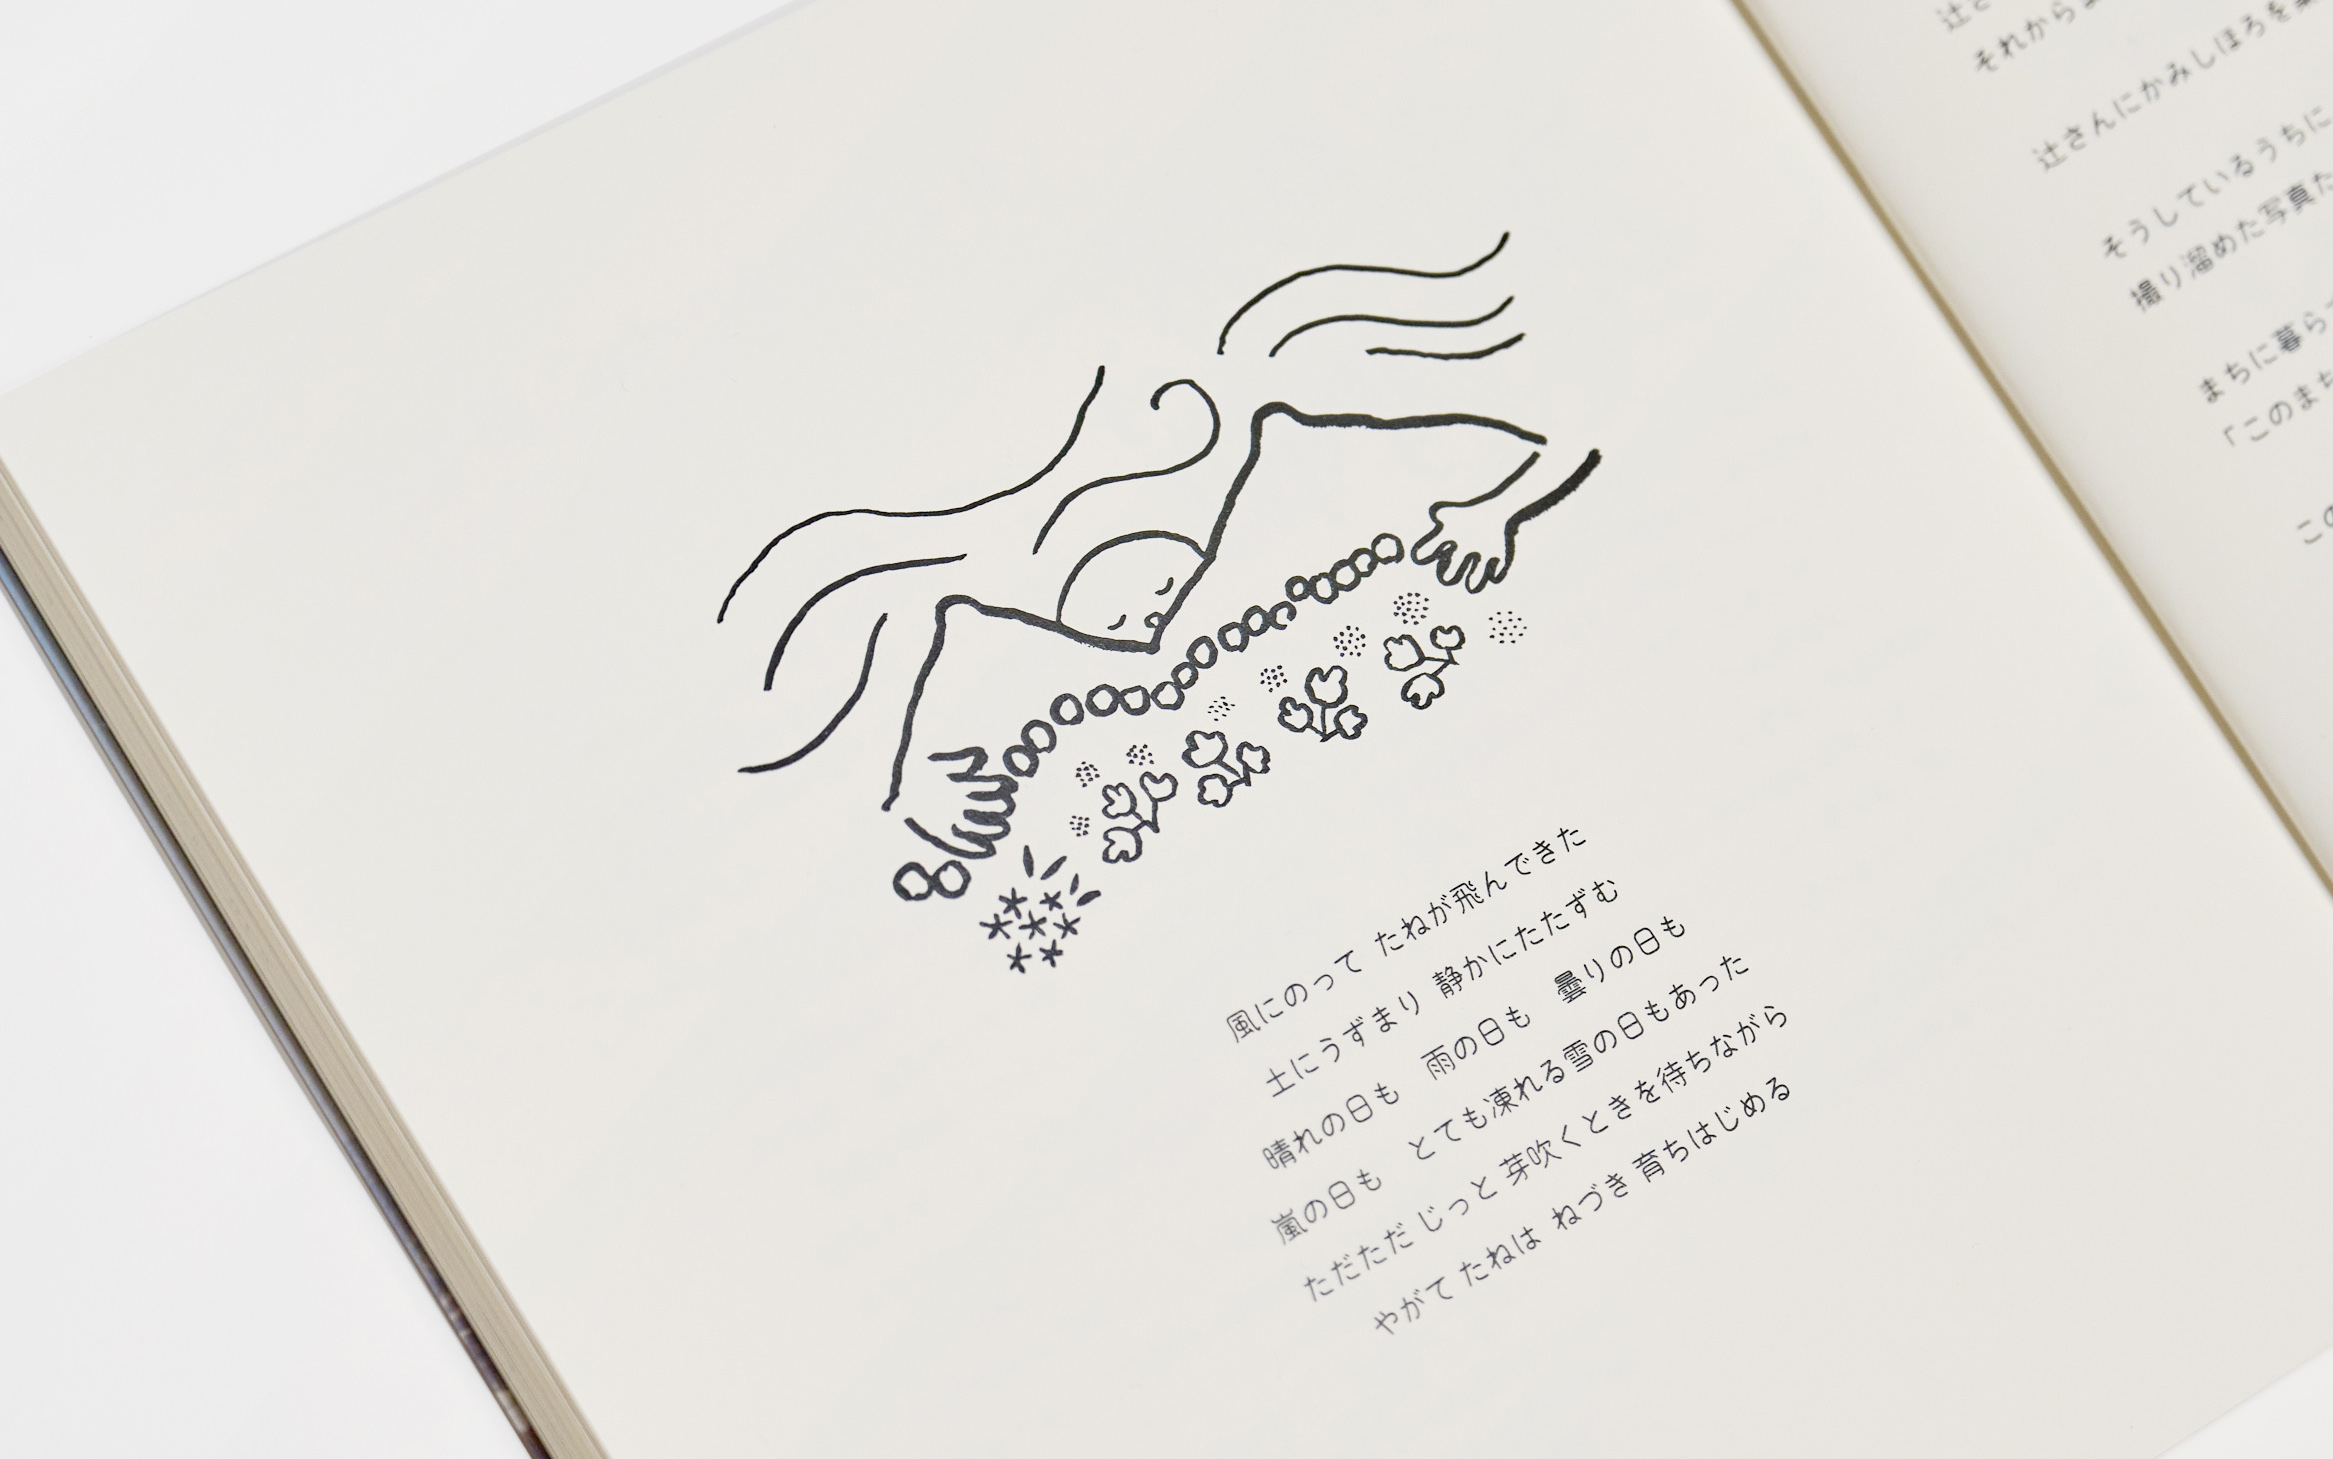 風にのって たねが飛んできた
土にうずまり 静かにたたずむ
晴れの日も 雨の日も 曇りの日も
嵐の日も とても凍れる雪の日もあった
ただただ じっと 芽吹くときを待ちながら
やがて たねは ねづき 育ちはじめる
辻さ
それからま
辻さんにかみしほろを案
そうしているうちに
撮り溜めた写真た
まちに暮らす
「このまち
この